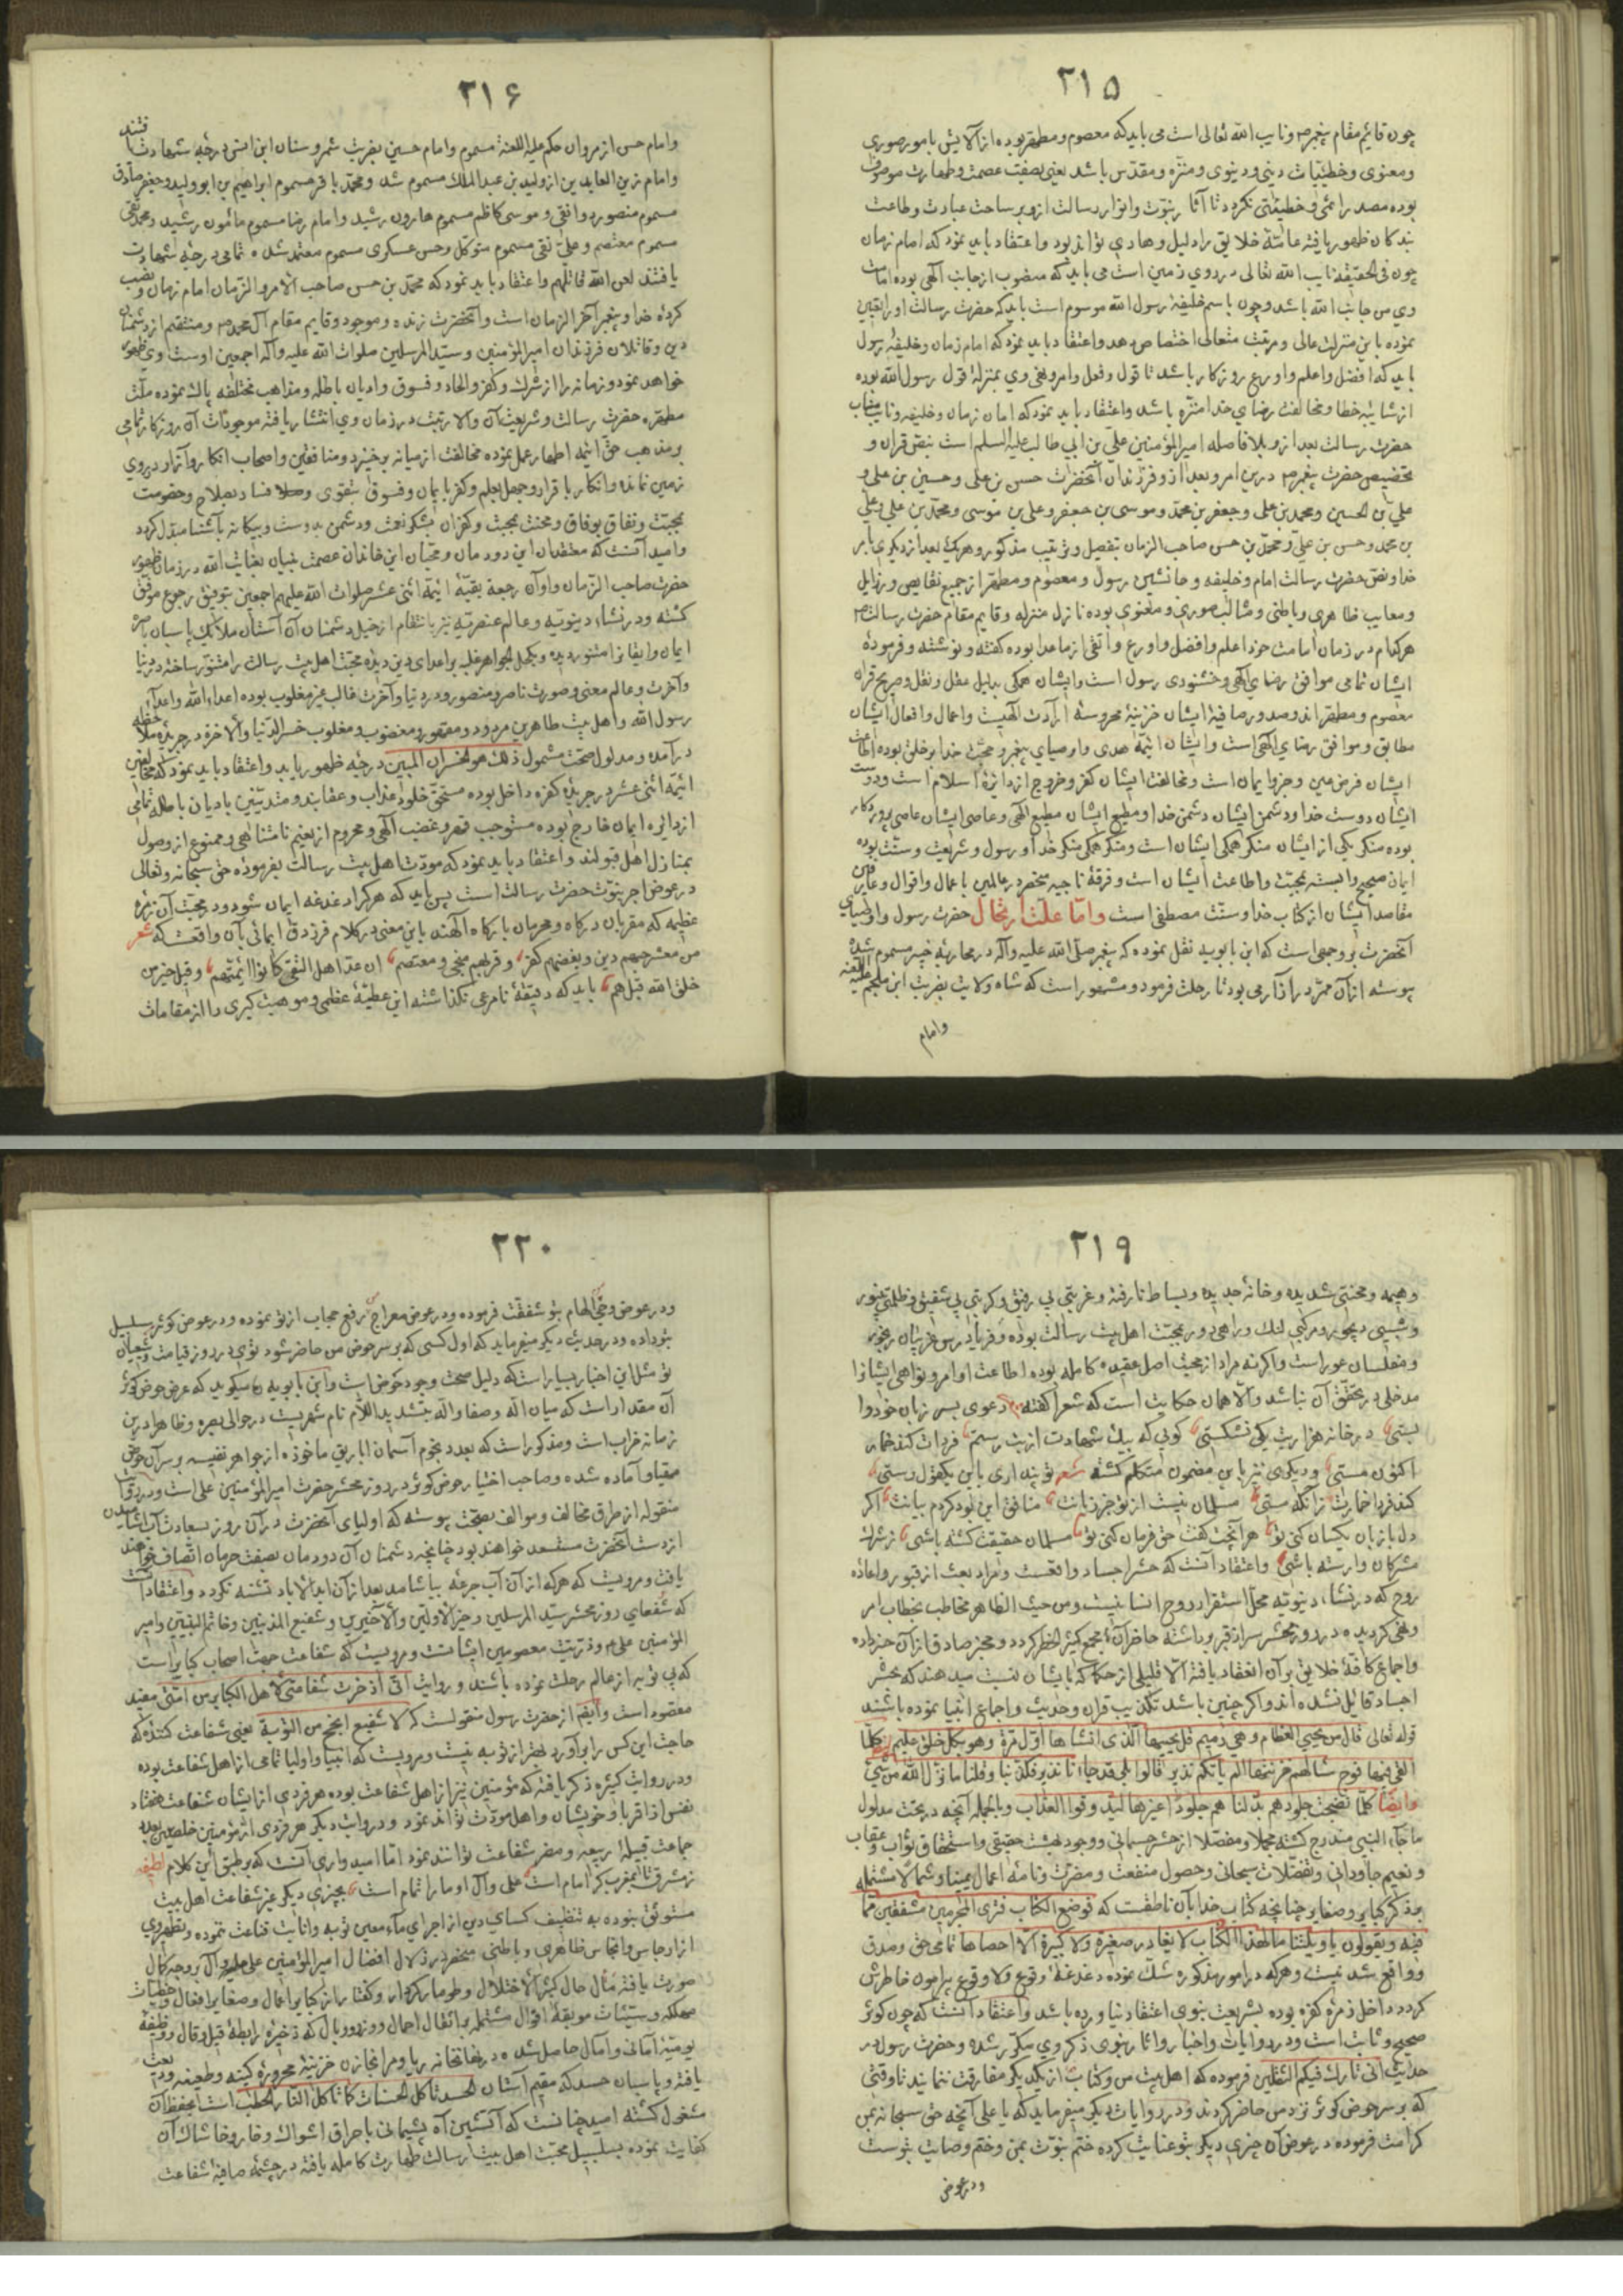 ۲۱۵
چون قایم مقام پیغمبر و نایب الله تعالی است می باید که معصوم و مطهر بوده از آلایش بامور صوری
و معنوی و خطیئات دینی و دنیوی و منزه و مقدس باشد یعنی بصفت عصمت و طهارت موصوف
بوده مصدر اثمی و خطیئتی نکردد تا آثار نبوت و انوار رسالت ازو بر ساحت عبادت و طاعت
بندکان ظهور یافته عامّهٔ خلایق را دلیل و هادی تواند بود و اعتقاد باید نمود که امام زمان
چون فی الحقیقه نایب الله تعالی در روی زمین است می باید که منصوب از جانب الهی بوده امامت
وی من جانب الله باشد و چون باسم خلیفهٔ رسول الله موسوم است باید که حضرت رسالت او را تعیین
نموده باین منزلت عالی و مرتبت متعالی اختصاص دهد و اعتقاد باید نمود که امام زمان و خلیفهٔ رسول
باید که افضل و اعلم و اورع روزکار باشد تا قول و فعل و امر و نهی وی بمنزلهٔ قول رسول الله بوده
از شایبهٔ خطا و مخالفت رضای خدا منزّه باشد و اعتقاد باید نمود که امام زمان و خلیفه و نایب مناب
حضرت رسالت بعد ازو بلا فاصله امیر المؤمنین علی بن ابی طالب علیه السلم است بنص قران و
تخصیص حضرت پیغمبر درین امر و بعد ازو فرزندان آنحضرت حسن بن علی و حسین بن علی و
علی بن الحسین و محمد بن علی و جعفر بن محمد و موسی بن جعفر و علی بن موسی و محمد بن علی و علی
بن محمد و حسن بن علی و محمد بن حسن صاحب الزمان بتفصیل و ترتیب مذکور و هر یک بعد از دیکری بامر
خدا و نص حضرت رسالت امام و خلیفه و جانشین رسول و معصوم و مطهر از جمیع نقایص و رذایل
و معایب ظاهری و باطنی و مثالب صوری و معنوی بوده نازل منزله و قایم مقام حضرت رسالت
هر کدام در زمان امامت خود اعلم و افضل و اورع و اتقی از ما عدا بوده کفته و نوشته و فرمودهٔ
ایشان تمامی موافق رضای الهی و خشنودی رسول است و ایشان همکی بدلیل عقل و نقل و صریح قران
معصوم و مطهر اند و صدور صافیهٔ ایشان خزینهٔ محروسهٔ ارادت الهیست و اعمال و افعال ایشان
مطابق و موافق رضای الهی است و ایشان ائمهٔ هدی و اوصیای پیغمبر و حجت خدا بر خلق بوده اطاعت
ایشان فرض عین و جزو ایمان است و مخالفت ایشان کفر و خروج از دایرهٔ اسلام است و دوست
ایشان دوست خدا و دشمن ایشان دشمن خدا و مطیع ایشان مطیع الهی و عاصی ایشان عاصی پروردکار
بوده منکر یکی از ایشان منکر همکی ایشان است و منکر همکی منکر خدا و رسول و شریعت و سنت بوده
ایمان صحیح وابسته بمحبت و اطاعت ایشان است و فرقهٔ ناجیه منحصر در عالمین باعمال و اقوال و عارفین
مقاصد ایشان از کتاب خدا و سنت مصطفی است و امّا علّت ارتحال حضرت رسول و اوصیای
آنحضرت بر وجهی است که ابن بابویه نقل نموده که پیغمبر صلی الله علیه و آله در محاربهٔ خیبر مسموم شده
پیوسته از آن ممر در آزار می بود تا رحلت فرمود و مشهور است که شاه ولایت بضربت ابن ملجم علیه اللعنه
و امام
۲۱۶
و امام حسن از مروان حکم علیه اللعنة مسموم و امام حسین بضربت شمر و سنان ابن انس درجهٔ شهادت یافتند
و امام زین العابدین از ولید بن عبد الملک مسموم شد و محمد باقر مسموم ابراهیم بن ابو ولید و جعفر صادق
مسموم منصور دوانقی و موسی کاظم مسموم هارون رشید و امام رضا مسموم مأمون رشید و محمد تقی
مسموم معتصم و علی نقی مسموم متوکل و حسن عسکری مسموم معتمد شده تمامی درجهٔ شهادت
یافتند لعن الله قاتلهم و اعتقاد باید نمود که محمد بن حسن صاحب الامر و الزمان امام زمان و نصب
کردهٔ خدا و پیغمبر آخر الزمان است و آنحضرت زنده و موجود و قایم مقام آل محمد و منتقم از دشمنان
دین و قاتلان فرزندان امیر المؤمنین و سید المرسلین صلوات الله علیه و آله اجمعین اوست وی ظهور
خواهد نمود و زمانه را از شرک و کفر و الحاد و فسوق و ادیان باطله و مذاهب مختلفه پاک نموده ملت
مطهرهٔ حضرت رسالت و شریعت آن والا رتبت در زمان وی انتشار یافته موجودات آن روزکار تمامی
بر مذهب حق ائمه اطهار عمل نموده مخالفت از میانه برخیزد و منافقین و اصحاب انکار و آثار در روی
زمین نمانده و انکار باقرار و جهل بعلم و کفر بایمان و فسوق بتقوی و فساد بصلاح و خصومت
بمحبت و نفاق بوفاق و محنت بمحبت و کفران بشکر نعمت و دشمن بدوست و بیکانه بآشنا مبدل کردد
و امید آنست که معتقدان این دودمان و محبان این خاندان عصمت بنیان بعنایت الله در زمان ظهور
حضرت صاحب الزمان و اوان رجعة بقیهٔ ائمهٔ اثنی عشر صلوات الله علیهم اجمعین بتوفیق رجوع موفق
کشته و در نشاء دنیویه و عالم عنصریه نیز بانتقام از خیل دشمنان آن آستان ملائک پاسبان باصرهٔ
ایمان و ایقانرا منور دیده و بکحل الجواهر غلبه بر اعدای دین دیدهٔ محبت اهل بیت رسالت را منور ساخته در دنیا
و آخرت و عالم معنی و صورت ناصر و منصور و در دنیا و آخرت غالب غیر مغلوب بوده اعداء الله و اعداء
رسول الله و اهل بیت طاهرین مردود و مقهور و مغضوب و مغلوب خسر الدنیا و الاخرة در جریدهٔ ملاحظه
درآمده و مدلول صحت مشمول ذلک هو الخسران المبین درجهٔ ظهور یابد و اعتقاد باید نمود که مخالفین
ائمهٔ اثنی عشر در جریدهٔ کفره داخل بوده مستحق خلود عذاب و عقابند و متدینین بادیان باطله تمامی
از دایرهٔ ایمان خارج بوده مستوجب قهر و غضب الهی و محروم از نعیم نامتناهی و ممنوع از وصول
بمنازل اهل قبولند و اعتقاد باید نمود که مودت اهل بیت رسالت بفرمودهٔ حق سبحانه و تعالی
در عوض اجر نبوت حضرت رسالت است پس باید که هر کرا دغدغه ایمان شود در محبت آن زمرهٔ
عظیمه که مقربان درکاه و محرمان بارکاه الهند باین معنی در کلام فرزدق ایمائی بآن واقعست که شعر
من معشر حبهم دین و بغضهم کفر و قربهم منجی و معتصم ان عد اهل التقی کانوا ائمتهم و قیل خیر من
خلق الله قیل هم باید که دقیقهٔ نامرعی نکذاشته این عطیهٔ عظمی و موهبت کبری را از مقامات
۲۱۹
وهیمه و محنتی شدیده و خانهٔ جدیده و بساط نارفته و غربتی بی رفیق و کربتی بی شفیق و ظلمتی بی نور
و شبی دیجور و مرکبی لنک و راهی دور محبت اهل بیت رسالت بوده و فریادرس غریبان رنجور
و مفلسان عور است و اکر نه مراد از محبت اصل عقیدهٔ کامله بوده اطاعت اوامر و نواهی ایشانرا
مدخلی در تحقق آن نباشد والا همان حکایت است که شعرا کفته دعوی بسر زبان خود وا
بستی در خانه هزار بت یکی نشکستی کوئی که بیک شهادت از بت رستم فردات کند خمار
اکنون مستی و دیکری نیز باین مضمون متکلم کشته شعر تو پنداری باین یکقول رستی
کند فردا خمارت زانکه مستی مسلمان نیست از تو جز زبانت منافق این بود کردم بیانت اکر
دل با زبان یکسان کنی تو هر آنچت کفت حق فرمان کنی تو مسلمان حقیقت کشته باشی ز شرک
مشرکان وارسته باشی و اعتقاد آنست که حشر اجساد واقعست و مراد بعث از قبور و اعادهٔ
روح که در نشاء دنیوته محل استقرار روح انسانیست و من حیث الظاهر مخاطب بخطاب امر
و نهی کردیده در روز محشر سر از قبر برداشته حاضر آن مجمع کثیر الخطر کردد و مخبر صادق از آن خبر داده
و اجماع کافهٔ خلایق بر آن انعقاد یافته الا قلیلی از حکما که بایشان نسبت میدهند که بحشر
اجساد قایل نشده اند و اکر چنین باشد تکذیب قران و حدیث و اجماع انبیا نموده باشند
قوله تعالی قال من یحیی العظام و هی رمیم قل یحییها الذی انشاها اول مرة و هو بکل خلق علیم کلما
القی فیها فوج سالهم خزنتها الم یاتکم نذیر قالوا بلی قد جاءنا نذیر فکذبنا و قلنا ما نزل الله من شیئ
و ایضا کلما نضجت جلودهم بدلنا هم جلودا غیرها لیذوقوا العذاب و بالجمله آنچه در تحت مدلول
ما جاء النبی مندرج کشته مجملا و مفصلا از حشر جسمانی و وجود بهشت حقیقی و استحقاق ثواب و عقاب
و نعیم جاودانی و تفضلات سبحانی و حصول منفعت و مضرت و نامهٔ اعمال یمینا و شمالا مشتمله
بر ذکر کبایر و صغایر چنانچه کتاب خدا بآن ناطقست که فوضع الکتاب فتری المجرمین مشفقین مما
فیه و یقولون یا ویلتنا مالهذا الکتاب لا یغادر صغیرة و لا کبیرة الا احصاها تمامی حق و صدق
و واقع شدنیست و هر که در امور مذکوره شک نموده دغدغهٔ وقوع و لا وقوع پیرامون خاطرش
کردد داخل زمرهٔ کفره بوده بشریعت نبوی اعتقاد نیاورده باشد و اعتقاد آنست که چون کوثر
صحیح و ثابت است و در روایات و اخبار و آثار نبوی ذکر وی مکرر شده و حضرت رسول در
حدیث انی تارک فیکم الثقلین فرموده که اهل بیت من و کتاب از یکدیکر مفارقت ننمایند تا وقتی
که بر سر حوض کوثر نزد من حاضر کردند و در روایات دیکر میفرماید که یا علی آنچه حق سبحانه بمن
کرامت فرموده در عوض آن چیزی دیکر بتو عنایت کرده ختم نبوت بمن و ختم وصایت بتوست
و در عوض
۲۲۰
و در عوض وحی الهام بتو شفقت فرموده و در عوض معراج رفع حجاب از تو نموده و در عوض کوثر سلسبیل
بتو داده و در حدیث دیکر میفرماید که اول کسی که بر سر حوض من حاضر شود توی در روز قیامت و شیعیان
تو مثل این اخبار بسیار است که دلیل صحت وجود حوض است و ابن بابویه میکوید که عرض حوض کوثر
آن مقدار است که میان ابله و صنعا و ابله بتشدید اللام نام شهریست در حوالی بصره و ظاهرا درین
زمانه خراب است و مذکور است که بعدد نجوم آسمان اباریق ماخوذه از جواهر نفیسه بر سر آن حوض
مهیا و آماده شده و صاحب اختیار حوض کوثر در روز محشر حضرت امیر المؤمنین علی است و در روایات
منقوله از طرق مخالف و موالف بصحت پیوسته که اولیای آنحضرت در آن روز بسعادت آب آشامیدن
از دست آنحضرت مستسعد خواهند بود چنانچه دشمنان آن دودمان بصفت حرمان اتصاف خواهند
یافت و مرویست که هر که از آن آب جرعه بیاشامد بعد از آن ابد الاباد تشنه نکردد و اعتقاد آنست
که شفعای روز محشر سید المرسلین و خیر الاولین و الآخرین و شفیع المذنبین و خاتم النبیین و امیر
المؤمنین علی و ذریت معصومین ایشانست و مرویست که شفاعت جهت اصحاب کبایر است
که بی توبه از عالم رحلت نموده باشند و روایت انی اذخرت شفاعتی لاهل الکبایر من امتی مفید
مقصود است و ایضا از حضرت رسول منقولست که لا شفیع انجح من التوبة یعنی شفاعت کننده که
حاجت این کس را برآورد بهتر از توبه نیست و مرویست که انبیا و اولیا تمامی از اهل شفاعت بوده
و در روایت کثیره ذکر یافته که مؤمنین نیز از اهل شفاعت بوده هر فردی از ایشان شفاعت هفتاد
نفس از اقربا و خویشان و اهل مودت تواند نمود و در روایت دیکر هر فردی از مؤمنین خلصین بعدد
جماعت قبیلهٔ ربیعه و مضر شفاعت توانند نمود اما امیدواری آنست که بر طبق این کلام لطیف
ز مشرق تا بمغرب کر امام است علی و آل او ما را تمام است بچیزی دیکر غیر شفاعت اهل بیت
مستوثق نبوده به تنظیف کسای دین از اجرای ماء معین توبه و انابت قناعت ننموده و تطهیر وی
از ارجاس و انجاس ظاهری و باطنی منحصر در زلال افضال امیر المؤمنین علی و آل بر وجه کمال
صورت یافته مآل حال کثیر الاختلال و طومار کردار و کفتار از کبایر اعمال و صغایر افعال و خطیات
مهلکه و سیئات موبقهٔ اقوال مشتمله بر اثقال احمال و وزر و وبال که ذخیرهٔ رابطهٔ قیل و قال و وظیفهٔ
یومیهٔ آمانی و آمال حاصل شده در نفاقخانه ریا و مرا بخازن خزینهٔ محروزهٔ کینه و طبیعه ودیعت
یافته و پاسبان حسد که مقیم آستان الحسد تاکل الحسنات کما تاکل النار الحطب است بحفظ آن
مشغول کشته امید چنانست که آتشین آه پشیمانی باحراق اشواک و خار و خاشاک آن
کفایت نموده بسلسبیل محبت اهل بیت رسالت طهارت کامله یافته در چشمهٔ صافیهٔ شفاعت